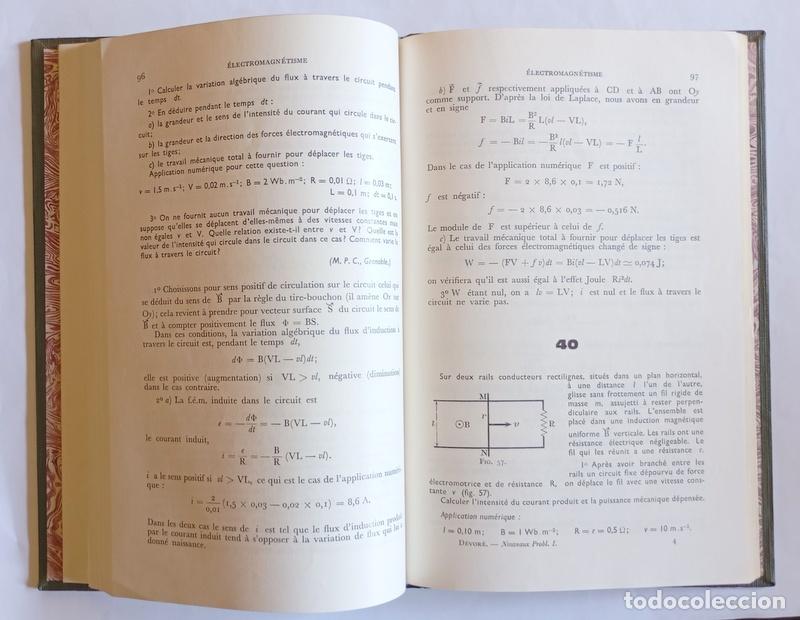 96
ÉLECTROMAGNÉTISME
1º Calculer la variation algébrique du flux à travers le circuit pendant
le temps dt.
2º En déduire pendant le temps dt :
a) la grandeur et le sens de l'intensité du courant qui circule dans le cir-
cuit;
b) la grandeur et la direction des forces électromagnétiques qui s'exercent
sur les tiges;
c) le travail mécanique total à fournir pour déplacer les tiges.
Application numérique pour cette question :
v = 1,5 m.s⁻¹; V = 0,02 m.s⁻¹; B = 2 Wb.m⁻²; R = 0,01 Ω; l = 0,03 m;
L = 0,1 m; dt = 0,1 s.
3º On ne fournit aucun travail mécanique pour déplacer les tiges et on
suppose qu'elles se déplacent d'elles-mêmes à des vitesses constantes mais
non égales v et V. Quelle relation existe-t-il entre v et V? Quelle est la
valeur de l'intensité qui circule dans le circuit dans ce cas? Comment varie le
flux à travers le circuit?
(M. P. C., Grenoble.)
1º Choisissons pour sens positif de circulation sur le circuit celui qui
se déduit du sens de B⃗ par la règle du tire-bouchon (il amène Ox sur
Oy); cela revient à prendre pour vecteur surface S⃗ du circuit le sens de
B⃗ et à compter positivement le flux Φ = BS.
Dans ces conditions, la variation algébrique du flux d'induction à
travers le circuit est, pendant le temps dt,
dΦ = B(VL — vl)dt;
elle est positive (augmentation) si VL > vl, négative (diminution)
dans le cas contraire.
2º a) La f.é.m. induite dans le circuit est
e = — dΦ/dt = — B(VL — vl),
le courant induit,
i = e/R = — B/R (VL — vl).
i a le sens positif si vl > VL, ce qui est le cas de l'application numéri-
que :
i = 2/0,01 (1,5 × 0,03 — 0,02 × 0,1) = 8,6 A.
Dans les deux cas le sens de i est tel que le flux d'induction produit
par le courant induit tend à s'opposer à la variation de flux qui lui a
donné naissance.
ÉLECTROMAGNÉTISME
97
b) F⃗ et f⃗ respectivement appliquées à CD et à AB ont Oy
comme support. D'après la loi de Laplace, nous avons en grandeur
et en signe
F = BiL = B²/R L(vl — VL),
f = — Bil = — B²/R l(vl — VL) = — F l/L.
Dans le cas de l'application numérique F est positif :
F = 2 × 8,6 × 0,1 = 1,72 N,
f est négatif :
f = — 2 × 8,6 × 0,03 = — 0,516 N.
Le module de F est supérieur à celui de f.
c) Le travail mécanique total à fournir pour déplacer les tiges est
égal à celui des forces électromagnétiques changé de signe :
W = — (FV + fv)dt = Bi(vl — LV)dt ≃ 0,074 J;
on vérifiera qu'il est aussi égal à l'effet Joule Ri²dt.
3º W étant nul, on a lv = LV; i est nul et le flux à travers le
circuit ne varie pas.
40
Sur deux rails conducteurs rectilignes, situés dans un plan horizontal,
à une distance l l'un de l'autre,
glisse sans frottement un fil rigide de
masse m, assujetti à rester perpen-
diculaire aux rails. L'ensemble est
placé dans une induction magnétique
uniforme B⃗ verticale. Les rails ont une
résistance électrique négligeable. Le
fil qui les réunit a une résistance r.
M
l
⊙B
r
v
R
N
FIG. 57.
1º Après avoir branché entre les
rails un circuit fixe dépourvu de force
électromotrice et de résistance R, on déplace le fil avec une vitesse cons-
tante v (fig. 57).
Calculer l'intensité du courant produit et la puissance mécanique dépensée.
Application numérique :
l = 0,10 m; B = 1 Wb.m⁻²; R = r = 0,5 Ω; v = 10 m.s⁻¹.
DÉVORÉ. — Nouveaux Probl. I.
4
todocoleccion